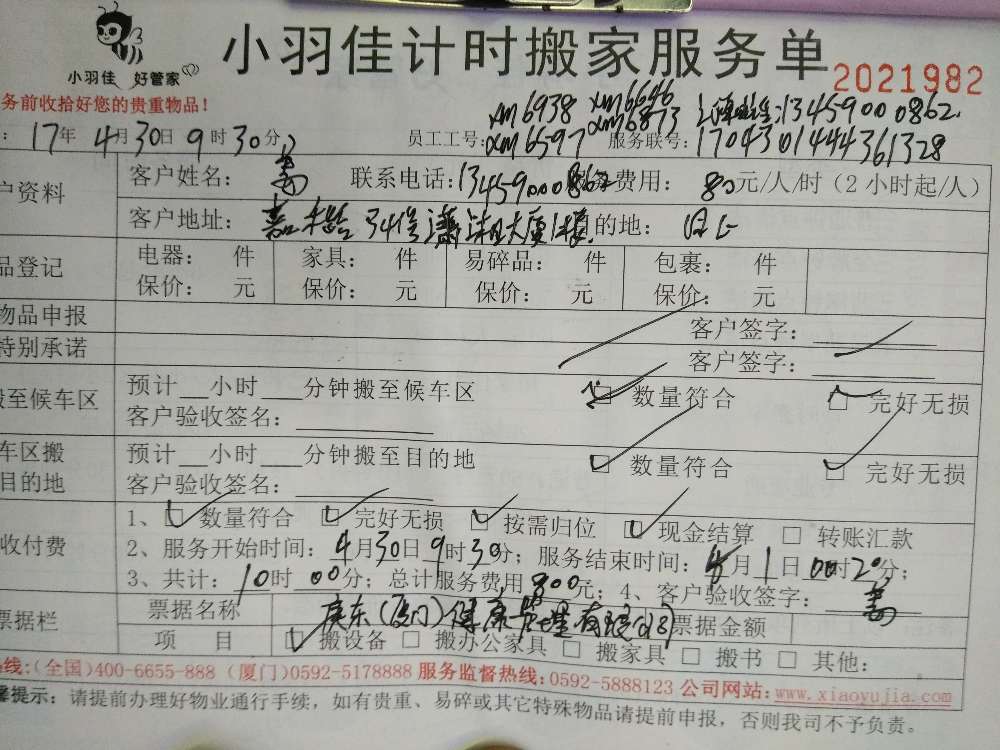 小羽佳计时搬家服务单
小羽佳 好管家
2021982
务前收拾好您的贵重物品！
xm6938 xm6646 13459000862
: 17年4月30日9时30分 员工工号: xm6597 xm6873 服务联号: 1704301444361328
户资料 客户姓名: 联系电话: 13459000862 务费用: 80元/人/时（2小时起/人）
客户地址: 的地:
品登记 电器: 件 家具: 件 易碎品: 件 包裹: 件
保价: 元 保价: 元 保价: 元 保价: 元
物品申报 客户签字:
特别承诺 客户签字:
搬至候车区 预计__小时___分钟搬至候车区 数量符合 □ 完好无损
客户验收签名:
车区搬目的地 预计__小时___分钟搬至目的地 □ 数量符合 □ 完好无损
客户验收签名:
收付费 1、□ 数量符合 □ 完好无损 □ 按需归位 □ 现金结算 □ 转账汇款
2、服务开始时间: 4月30日9时30分; 服务结束时间: 月1日00时20分;
3、共计: 10时00分; 总计服务费用800元; 4、客户验收签字:
票据栏 票据名称 (厦门)健康管理有限公司 票据金额
项 目 □ 搬设备 □ 搬办公家具 □ 搬家具 □ 搬书 □ 其他:
热线:(全国)400-6655-888 (厦门)0592-5178888 服务监督热线:0592-5888123 公司网站:www.xiaoyujia.com
馨提示: 请提前办理好物业通行手续，如有贵重、易碎或其它特殊物品请提前申报，否则我司不予负责。